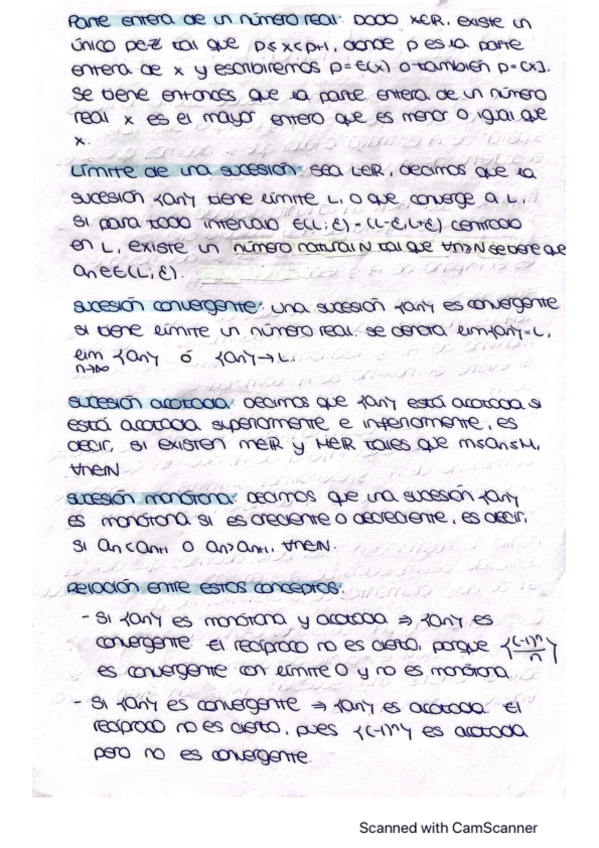 Parte entera de un número real: Dado x∈ℝ, existe un
único p∈ℤ tal que p≤x<p+1, donde p es la parte
entera de x y escribiremos p=E(x) o también p=[x].
Se tiene entonces que la parte entera de un número
real x es el mayor entero que es menor o igual que
x.
Límite de una sucesión: Sea L∈ℝ, decimos que la
sucesión {an} tiene límite L, o que converge a L,
si para todo intervalo E(L,ε)=(L-ε,L+ε) centrado
en L, existe un número natural N tal que ∀n>N se tiene que
an∈E(L,ε).
Sucesión convergente: una sucesión {an} es convergente
si tiene límite un número real. Se denota lim{an}=L,
lim {an} ó {an}→L.
n→∞
Sucesión acotada: Decimos que {an} está acotada si
está acotada superiormente e inferiormente, es
decir, si existen m∈ℝ y M∈ℝ tales que m≤an≤M,
∀n∈ℕ
Sucesión monótona: Decimos que una sucesión {an}
es monótona si es creciente o decreciente, es decir,
si an<an+1 o an>an+1, ∀n∈ℕ.
Relación entre estos conceptos:
- Si {an} es monótona y acotada ⇒ {an} es
convergente. El recíproco no es cierto, porque {(-1)^n/n}
es convergente con límite 0 y no es monótona
- Si {an} es convergente ⇒ {an} es acotada. El
recíproco no es cierto, pues {(-1)^n} es acotada
pero no es convergente.
Scanned with CamScanner